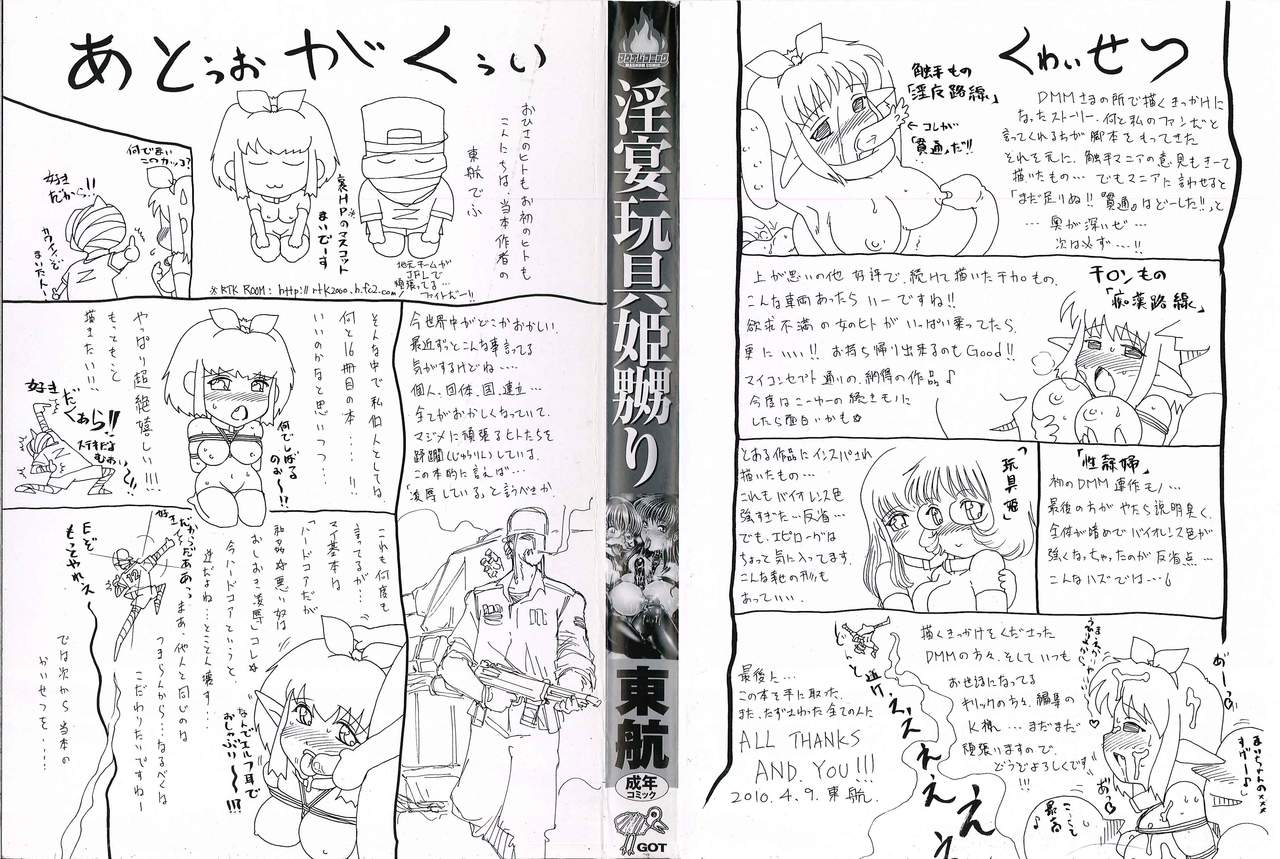 あとぅおがくぅい
おひさのヒトもお初のヒトも
こんにちは、当本作者の
東航でふ
裏HPのマスコット
まいでーす
地元チームが
JFLで
頑張ってる…
ファイトだー!!
※RTK ROOM: http://rtk2000.h.fc2.com/
何でまい
このカッコ?
好き
だから!!
今世界中がどこかおかしい。
最近ずっとこんな事言ってる
気がするけどね…
個人、団体、国、連立…
全てがおかしくなっていて、
マジメに頑張るヒトたちを
蹂躙(じゅうりん)している。
この本的に言えば…
「凌辱している。」と言うべきか。
そんな中で私個人としては
何と16冊目の本…!!
いいのかなと思いつつ…
やっぱり超絶嬉しい!!!
もっともっと
描きたい!!
何でしばる
のぉ～!?
好き
だくぁら!!
これも何度も
言ってるが…
マイ基本は
「ハードコアだが
和姦☆悪い奴は
おしおき凌辱」コレ☆
今ハードコアというと、
逆だよね…とことん壊す…
つまらんから…なるべくは
こだわりたいですねー
まあ、他人と同じのは
では次から当本の
かいせつを……
もっとやれぇ～
なんでエルフ耳で
おしゃぶり～!!?
マグナムコミック
MAGNUM COMIC
淫宴玩具姫嬲り
東航
成年
コミック
GOT
くわいせつ
触手もの
「淫辱路線」
←コレが
「貫通」だ!!
DMMさまの所で描くきっかけに
なったストーリー。何と私のファンだと
言ってくれる方が脚本をもってきた
それを元に、触手マニアの意見もきーて
描いたもの… でもマニアに言わせると
「まだ足りぬ!!『貫通』はどーした!!」と
… 奥が深いぜ…
次は必ず…!!
チカンもの
「痴漢路線」
上が思いの他好評で、続けて描いたチカンもの。
こんな車両あったらいーですね!!
欲求不満の女のヒトがいっぱい乗ってたら、
更にいい!! お持ち帰り出来るのもGood!!
マイコンセプト通りの、納得の作品♪
今度はこーゆーの続きものに
したら面白いかも☆
「玩具姫」
とある作品にインスパされ
描いたもの…
これもバイオレンス色
強すぎた…反省…
でも、エピローグは
ちょっと気に入ってます。
こんな形もまた
あっていい。
「性隷婦」
初のDMM連作もの…
最後の方がやたら説明臭く、
全体が暗めでバイオレンス色が
強くなっちゃったのが反省点…
こんなハズでは…
描くきっかけをくださった
DMMの方々、そしていつも
お世話になってる
キルックの方々、編集の
K様、…まだまだ
頑張りますので、
どうぞよろしくです
!!!
最後に…
この本を手に取った、
また、たずさわった全ての人に
ALL THANKS
AND YOU!!!
2010.4.9. 東航.
と逃げ
ェェェぇぇえ
あ゛～っ